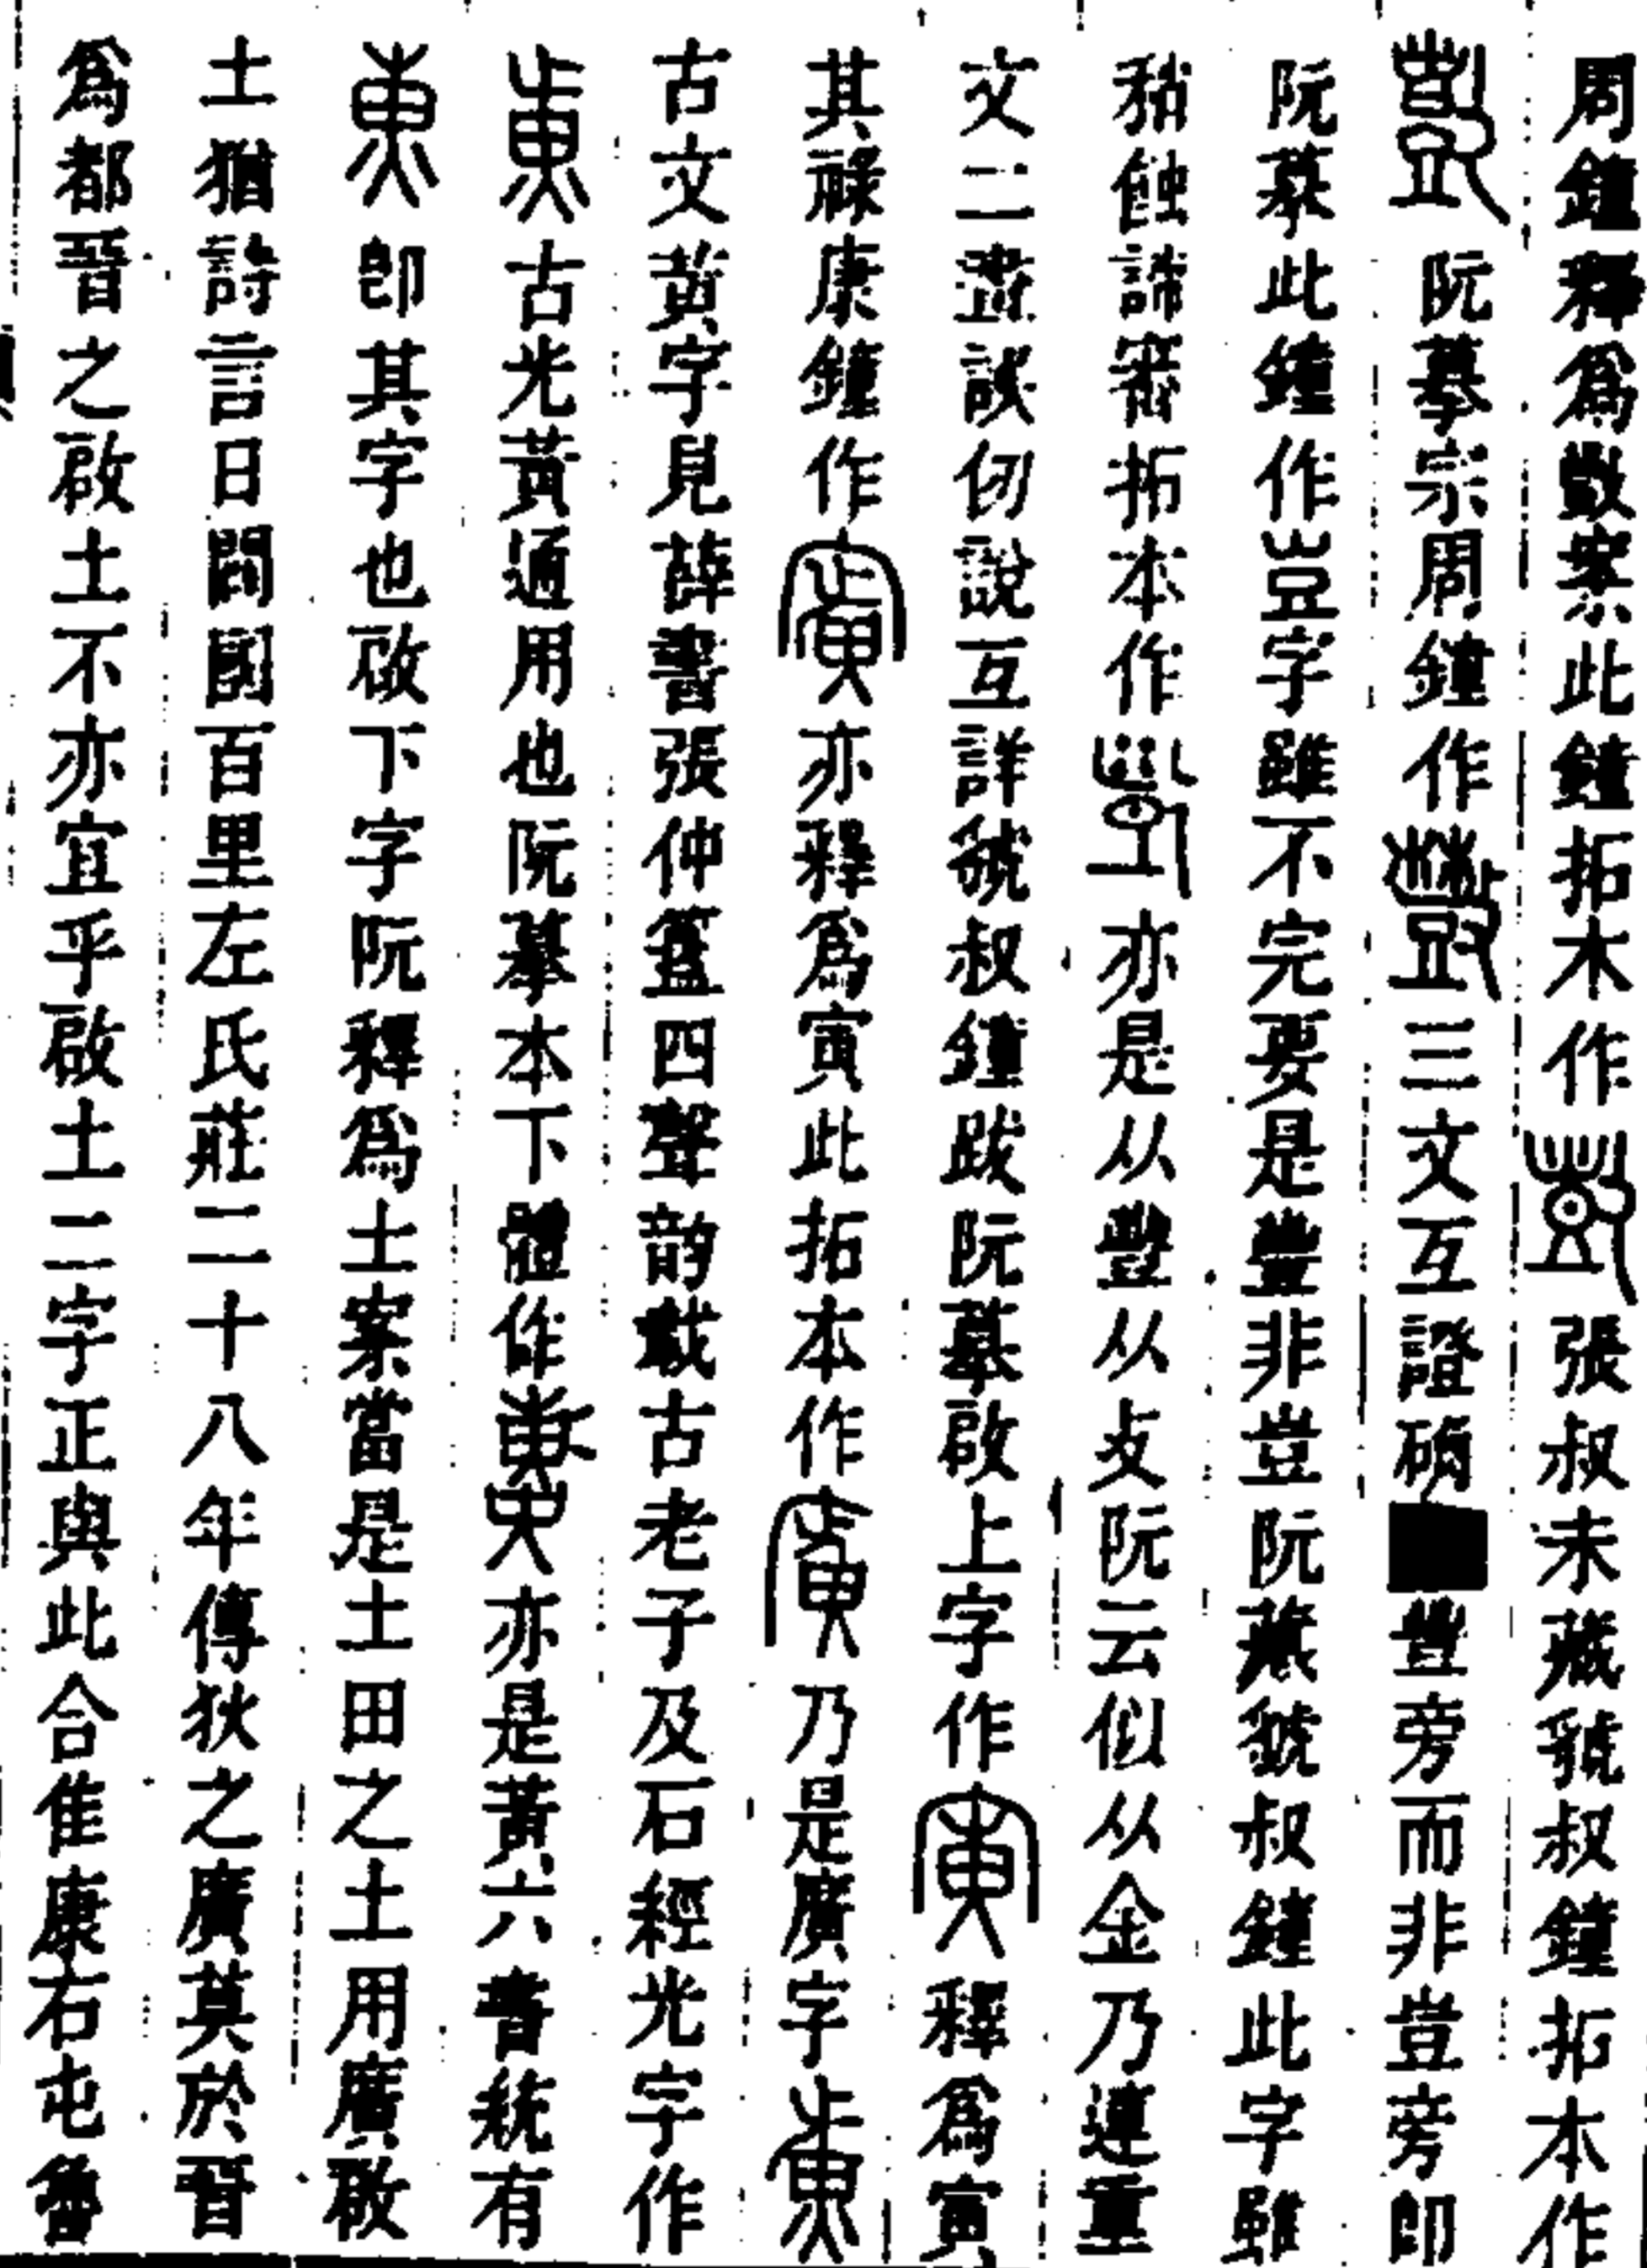 周鐘釋爲數案此鐘拓木作張叔未藏虢叔鐘拓本作
阮摹宗周鐘作三文互證确豐旁而非豈旁卽
阮摹此鐘作豈字雖不完要是豐非豈阮藏虢叔鐘此字雖
稍蝕諦審拓本作亦是从豐从攴阮云似从金乃連重
文二畫誤仞說互詳虢叔鐘跋阮摹啟上字作釋爲寅
其祿康鐘作亦釋爲寅此拓本作乃是廣字
古文黃字見薛書張仲簠四聲韵載古老子及石經光字作
古光黃通用也阮摹本下體作亦是黃六書統有
卽其字也啟下字阮釋爲土案當是土田之土用廣啟
土猶詩言日闢國百里左氏莊二十八年傳狄之廣莫於晉
爲都晉之啟土不亦宜乎啟土二字正與此合隹康右屯魯